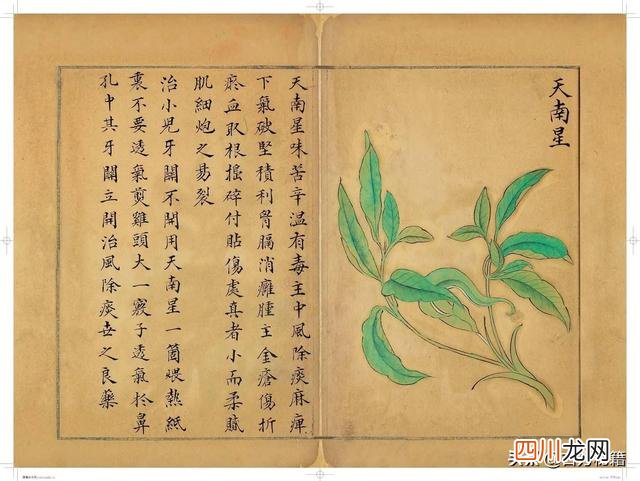 天南星
天南星味苦辛温有毒主中風除痰麻痺
下氣破堅積利胷膈消癰腫主金瘡傷折
瘀血取根搗碎付貼傷處真者小而柔膩
肌細炮之易裂
治小児牙關不開用天南星一箇煨熱紙
裹不要透氣剪雞頭大一竅子透氣於鼻
孔中其牙關立開治風除痰世之良藥
四川龙网